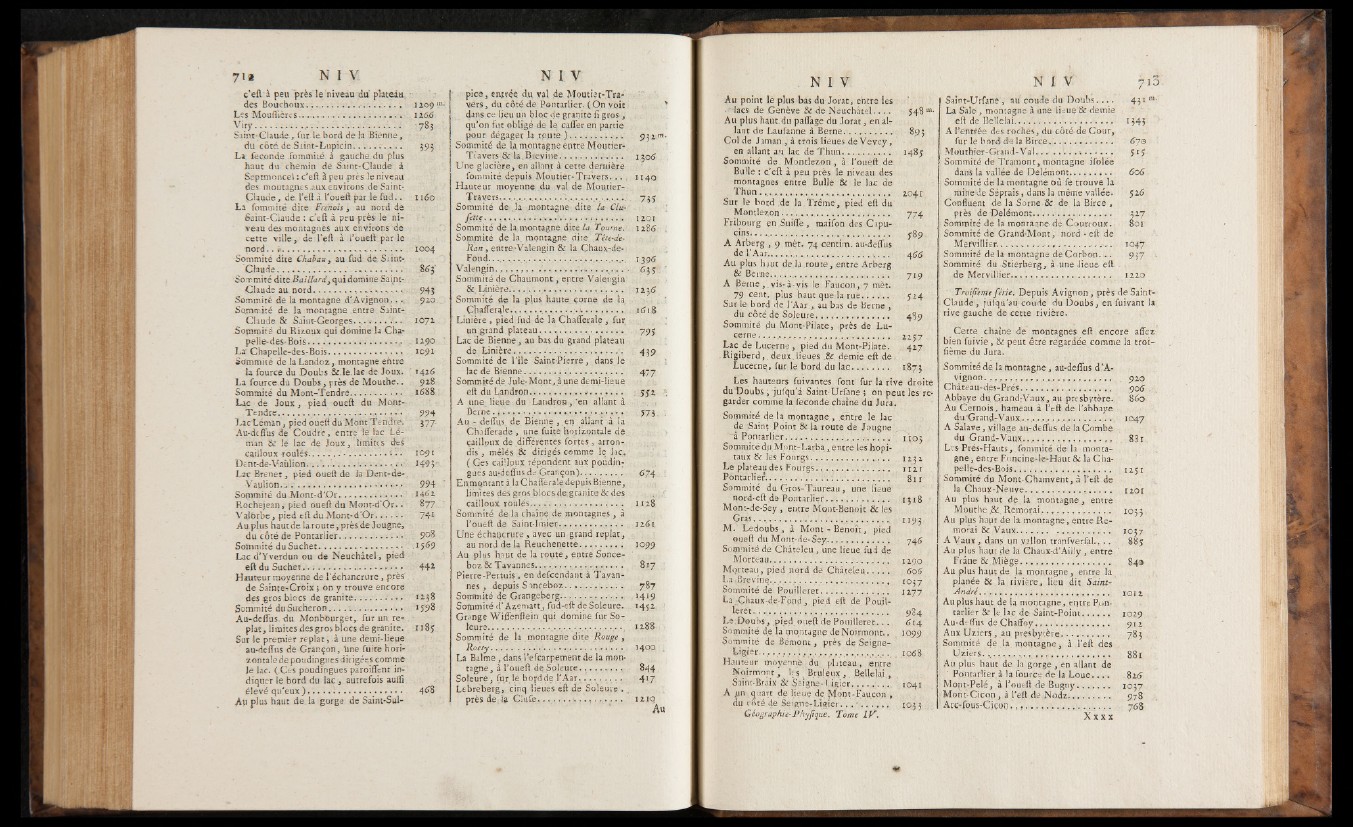 712 NIV
c'eſt à peu près le niveau du plateau
des Bouchoux................... 1209 m.
Les Mouſſières................... 1266
Viry................... 783
Saint-Claude, ſur le bord de la Bienne,
du côté de Saint-Lupicin.......... 393
La ſeconde ſommité à gauche du plus
haut du chemin de Saint-Claude à
Septmoncel : c'eſt à peu près le niveau
des montagnes aux environs de Saint-
Claude, de l'eſt à l'oueſt par le ſud.. 1160
La ſommité dite Frenois, au nord de
Saint-Claude : c'eſt à peu près le ni-
veau des montagnes aux environs de
cette ville, de l'eſt à l'oueſt par le
nord................... 1004
Sommité dite Chabau, au ſud de Saint-
Claude................... 863
Sommité dite Baillard, qui domine Saint-
Claude au nord................... 943
Sommité de la montagne d'Avignon... 920
Sommité de la montagne entre Saint-
Claude & Saint-Georges.......... 1071
Sommité du Rizoux qui domine la Cha-
pelle-des-Bois................... 1290
La Chapelle-des-Bois............... 1091
Sommité de la Landoz, montagne entre
la ſource du Doubs & le lac de Joux. 1426
La ſource du Doubs, près de Mouthe.. 928
Sommité du Mont-Tendre.......... 1688
Lac de Joux, pied oueſt du Mont-
Tendre................... 994
Lac Léman, pied oueſt du Mont Tendre. 377
Au-deſſus de Coudre, entre le lac Lé-
man & le lac de Joux, limites des
cailloux roulés................... 1091
Dent-de-Vaulion................... 1495
Lac Brenet, pied oueſt de la Dent-de-
Vaulion................... 994
Sommité du Mont-d'Or............. 1462
Rochejean, pied oueſt du Mont-d'Or.. 877
Valorbe, pied eſt du Mont-d'Or...... 741
Au plus haut de la route, près de Jougne,
du côté de Pontarlier............. 908
Sommité du Suchet................. 1569
Lac d'Yverdun ou de Neuchâtel, pied
eſt du Suchet................... 442
Hauteur moyenne de l'échancrure, près
de Sainte-Croix ; on y trouve encore
des gros blocs de granite.......... 1238
Sommité du Sucheron............... 1598
Au-deſſus du Monbourget, ſur un re-
plat, limites des gros blocs de granite. 1185
Sur le premier replat, à une demi-lieue
au-deſſus de Grançon, une ſuite hori-
zontale de poudingues dirigées comme
le lac. (Ces poudingues paroiſſent in-
diquer le bord du lac, autrefois auſſi
élevé qu'eux)................... 468
Au plus haut de la gorge de Saint-Sul-
NIV
pice, entrée du val de Moutier-Tra-
vers, du côté de Pontarlier. (On voit
dans ce lieu un bloc de granite ſi gros,
qu'on fut obligé de le caſſer en partie
pour dégager la route)........... 932 m.
Sommité de la montagne entre Moutier-
Travers & la Brevine............. 1306
Une glacière, en allant à cette dernière
ſommité depuis Moutier-Travers.... 1140
Hauteur moyenne du val de Moutier-
Travers................... 735
Sommité de la montagne dite la Clu-
ſette................... 1201
Sommité de la montagne dite la Tourne. 1286
Sommité de la montagne dite Tête-de-
Ran, entre Valengin & la Chaux-de-
Fond................... 1396
Valengin................... 635
Sommité de Chaumont, entre Valengin
& Linière................... 1236
Sommité de la plus haute corne de la
Chaſſerale................... 1618
Linière, pied ſud de la Chaſſerale, ſur
un grand plateau................ 795
Lac de Bienne, au bas du grand plateau
de Linière................... 439
Sommité de l'île Saint-Pierre, dans le
lac de Bienne................... 477
Sommité de Jule-Mont, à une demi-lieue
eſt du Landron................... 552
A une lieue du Landron, en allant à
Berne................... 573
Au-deſſus de Bienne, en allant à la
Chaſſerade, une ſuite horizontale de
cailloux de différentes ſortes, arron-
dis, mêlés & dirigés comme le lac.
(Ces cailloux répondent aux poudin-
gues au-deſſus de Grançon)......... 674
En montant à la Chaſſerale depuis Bienne,
limites des gros blocs de granite & des
cailloux roulés................... 1128
Sommité de la chaîne de montagnes, à
l'oueſt de Saint-Imier............. 1261
Une échancrure, avec un grand replat,
au nord de la Reuchenette......... 1099
Au plus haut de la route, entre Sonce-
boz & Tavannes................. 817
Pierre-Pertuis, en deſcendant à Tavan-
nes, depuis Sonceboz............ 787
Sommité de Grangeberg............. 1419
Sommité d'Azematt, ſud-eſt de Soleure. 1452
Grange Wiſſenſtein qui domine ſur So-
leure................... 1288
Sommité de la montagne dite Rouge,
Roety................... 1400
La Balme, dans l'eſcarpement de la mon-
tagne, à l'oueſt de Soleure......... 844
Soleure, ſur le bord de l'Aar........ 417
Lebreberg, cinq lieues eſt de Soleure,
près de la Cluſe................. 1210
Au
NIV
Au point le plus bas du Jorat, entre les
lacs de Genève & de Neuchâtel.... 548 m.
Au plus haut du paſſage du Jorat, en al-
lant de Lauſanne à Berne.......... 893
Col de Jaman, à trois lieues de Vevey,
en allant au lac de Thun.......... 1485
Sommité de Montlezon, à l'oueſt de
Bulle : c'eſt à peu près le niveau des
montagnes entre Bulle & le lac de
Thun................... 2041
Sur le bord de la Tréme, pied eſt du
Montlezon................... 774
Fribourg en Suiſſe, maiſon des Capu-
cins................... 589
A Arberg, 9 mèt. 74 centim. au-deſſus
de l'Aar................... 466
Au plus haut de la route, entre Arberg
& Berne................... 719
A Berne, vis-à-vis le Faucon, 7 mèt.
79 cent. plus haut que la rue...... 524
Sur le bord de l'Aar, au bas de Berne,
du côté de Soleure............... 489
Sommité du Mont-Pilate, près de Lu-
cerne................... 2257
Lac de Lucerne, pied du Mont-Pilate. 427
Rigiberd, deux lieues & demie eſt de
Lucerne, ſur le bord du lac........ 1873
Les hauteurs ſuivantes ſont ſur la rive droite
du Doubs, juſqu'à Saint-Urſane ; on peut les re-
garder comme la ſeconde chaîne du Jura.
Sommité de la montagne, entre le lac
de Saint-Point & la route de Jougne
à Pontarlier................... 1303
Sommité du Mont-Larba, entre les hopi-
taux & les Fourgs................ 1232
Le plateau des Fourgs............... 1121
Pontarlier................... 811
Sommité du Gros-Taureau, une lieue
nord-eſt de Pontarlier............. 1318
Mont-de-Sey, entre Mont-Benoît & les
Gras................... 1193
M. Ledoubs, à Mont-Benoît, pied
oueſt du Mont-de-Sey............. 746
Sommité de Châteleu, une lieue ſud de
Morteau................... 1290
Morteau, pied nord de Châteleu...... 606
La Brevine................... 1037
Sommité de Pouilleret.............. 1277
La Chaux-de-Fond, pied eſt de Pouil-
leret................... 984
Le Doubs, pied oueſt de Pouilleret... 614
Sommité de la montagne de Noirmont.. 1099
Sommité de Bémont, près de Seigne-
Ligier................... 1068
Hauteur moyenne du plateau, entre
Noirmont, les Bruleux, Bellelai,
Saint-Braix & Seigne-Ligier........ 1041
A un quart de lieue de Mont-Faucon,
du côté de Seigne-Ligier.......... 1033
Géographie-Phyſique. Tome IV.
NIV 713
Saint-Urſane, au coude du Doubs.... 431 m.
La Sale, montagne à une lieue & demie
eſt de Bellelai................... 1343
A l'entrée des roches, du côté de Cour,
ſur le bord de la Birce............. 670
Mouthier-Grand-Val................ 515
Sommité de Tramont, montagne iſolée
dans la vallée de Delémont......... 606
Sommité de la montagne où ſe trouve la
mine de Séprais, dans la même vallée. 526
Confluent de la Sorne & de la Birce,
près de Delémont................ 427
Sommité de la montagne de Courroux. 801
Sommité de Grand-Mont, nord-eſt de
Mervillier................... 1047
Sommité de la montagne de Corbon... 937
Sommité du Stierberg, à une lieue eſt
de Mervillier................... 1220
Troiſième ſérie. Depuis Avignon, près de Saint-
Claude, juſqu'au coude du Doubs, en ſuivant la
rive gauche de cette rivière.
Cette chaîne de montagnes eſt encore aſſez
bien ſuivie, & peut être regardée comme la troi-
ſième du Jura.
Sommité de la montagne, au-deſſus d'A-
vignon................... 920
Château-des-Prés................... 906
Abbaye du Grand-Vaux, au presbytère. 860
Au Cernois, hameau à l'eſt de l'abbaye
du Grand-Vaux................... 1047
A Salave, village au-deſſus de la Combe
du Grand-Vaux................... 831
Les Prés-Hauts, ſommité de la monta-
gne, entre Foncine-le-Haut & la Cha-
pelle-des-Bois................... 1251
Sommité du Mont-Chamvent, à l'eſt de
la Chaux-Neuve................... 1201
Au plus haut de la montagne, entre
Mouthe & Remorai............... 1033
Au plus haut de la montagne, entre Re-
morai & Vaux................... 1037
A Vaux, dans un vallon tranſverſal... 885
Au plus haut de la Chaux-d'Ailly, entre
Frane & Miège................... 840
Au plus haut de la montagne, entre la
planée & la rivière, lieu dit Saint-
André................... 1012
Au plus haut de la montagne, entre Pon-
tarlier & le lac de Saint-Point...... 1029
Au-deſſus de Chaffoy............... 912
Aux Uziers, au presbytère.......... 783
Sommité de la montagne, à l'eſt des
Uziers................... 881
Au plus haut de la gorge, en allant de
Pontarlier à la ſource de la Loue.... 826
Mont-Pelé, à l'oueſt de Bugny....... 1037
Mont-Cicon, à l'eſt de Nodz......... 978
Arc-ſous-Cicon................... 768
Xxxx